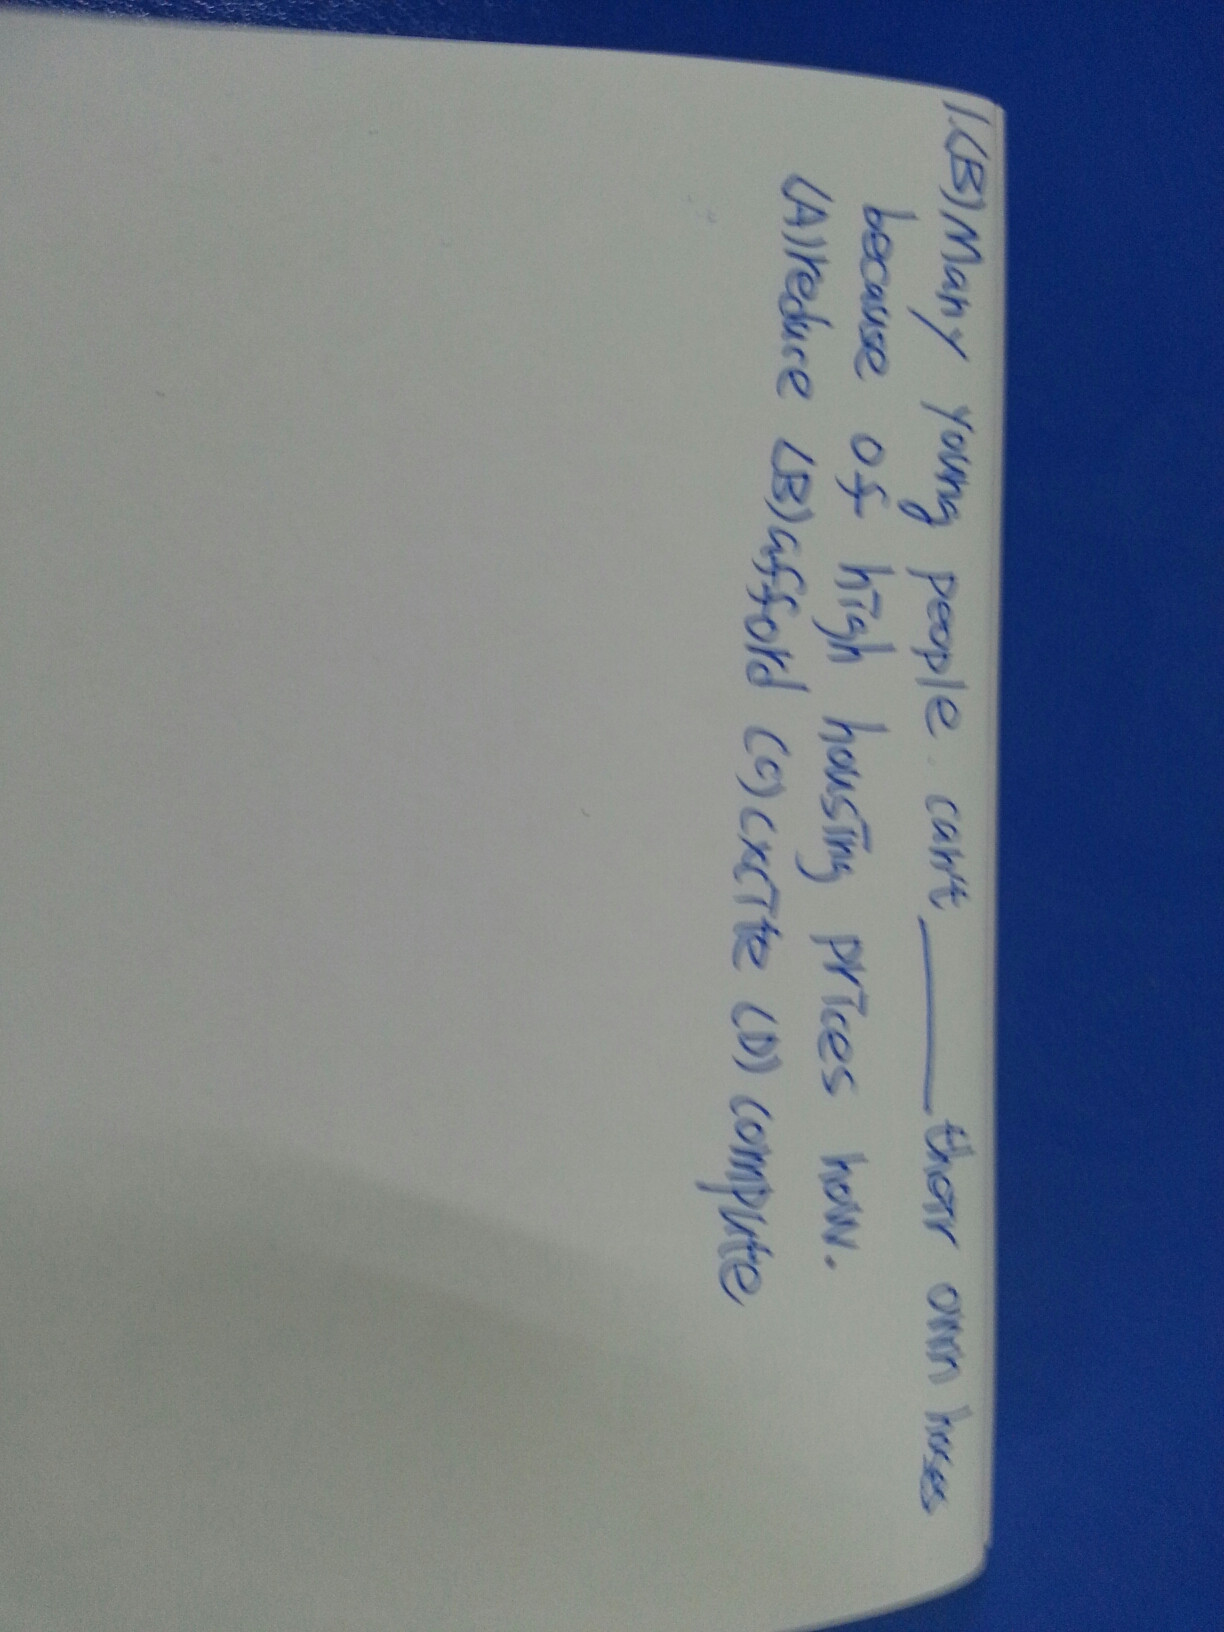 1.(B)Many young people can't ______ their own houses
because of high housing prices now.
(A)reduce (B)afford (C)excite (D)complete